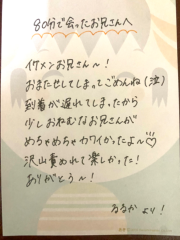 80分で会ったお兄さんへ
イケメンお兄さん〜！
おまたせしてしまってごめんね(泣)
到着が遅れてしまったから
少しおねむなお兄さんが
めちゃめちゃカワイかったよ〜♡
沢山責めれて楽しかった！
ありがとう〜！
るか より！